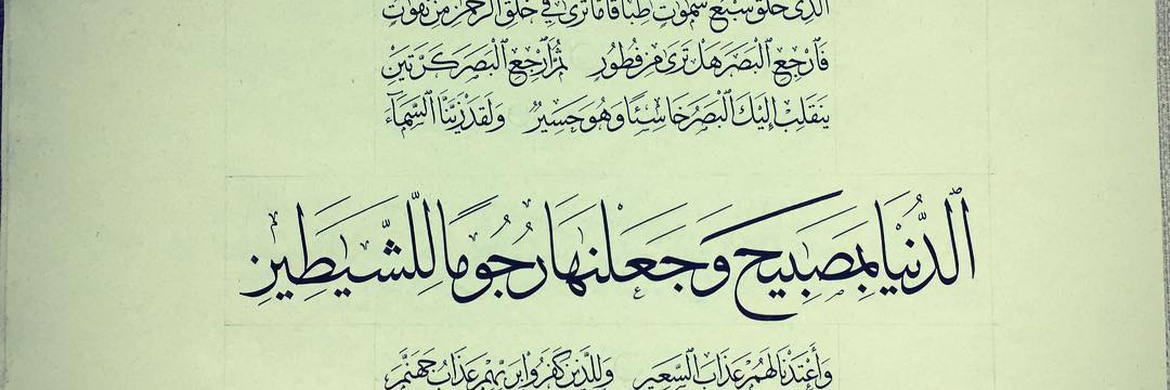 ٱلَّذِى خَلَقَ سَبْعَ سَمَٰوَٰتٍ طِبَاقًا مَّا تَرَىٰ فِى خَلْقِ ٱلرَّحْمَٰنِ مِن تَفَٰوُتٍ
فَٱرْجِعِ ٱلْبَصَرَ هَلْ تَرَىٰ مِن فُطُورٍ ثُمَّ ٱرْجِعِ ٱلْبَصَرَ كَرَّتَيْنِ
يَنقَلِبْ إِلَيْكَ ٱلْبَصَرُ خَاسِئًا وَهُوَ حَسِيرٌ وَلَقَدْ زَيَّنَّا ٱلسَّمَآءَ
ٱلدُّنْيَا بِمَصَٰبِيحَ وَجَعَلْنَٰهَا رُجُومًا لِّلشَّيَٰطِينِ
وَأَعْتَدْنَا لَهُمْ عَذَابَ ٱلسَّعِيرِ وَلِلَّذِينَ كَفَرُوا۟ بِرَبِّهِمْ عَذَابُ جَهَنَّمَ